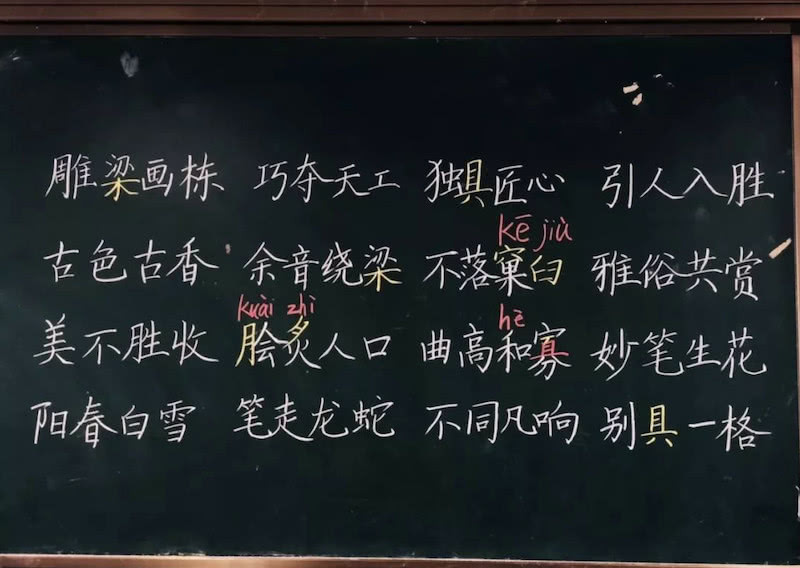 雕梁画栋 巧夺天工 独具匠心 引人入胜
kē jiù
古色古香 余音绕梁 不落窠臼 雅俗共赏
kuài zhì hè
美不胜收 脍炙人口 曲高和寡 妙笔生花
阳春白雪 笔走龙蛇 不同凡响 别具一格